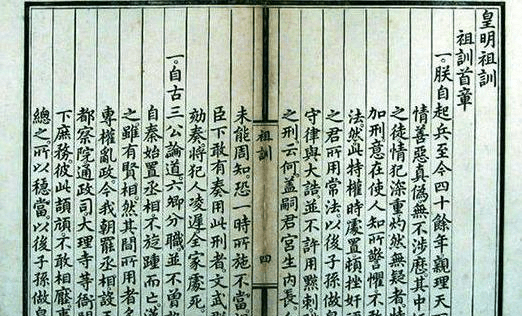 皇明祖訓
祖訓首章
一朕自起兵至今四十餘年親理天
情善惡真偽無不涉歷其中
之徒情犯深重灼然無疑者
加刑意在使人知所警懼不敢
法然此特權時處置頓挫奸
之君所用常法以後子孫做皇
守律與大誥並不許用黥刺
之刑云何蓋嗣君宮生內長
祖訓
四
未能周知恐一時所施不當
臣下敢有奏用此刑者文武
劾奏將犯人凌遲全家處死
一自古三公論道六卿分職並不曾
自秦始置丞相不旋踵而亡漢
之雖有賢相然其間所用者
專權亂政今我朝罷丞相設五
都察院通政司大理寺等衙門
下庶務彼此頡頏不敢相壓事
總之所以穩當以後子孫做皇